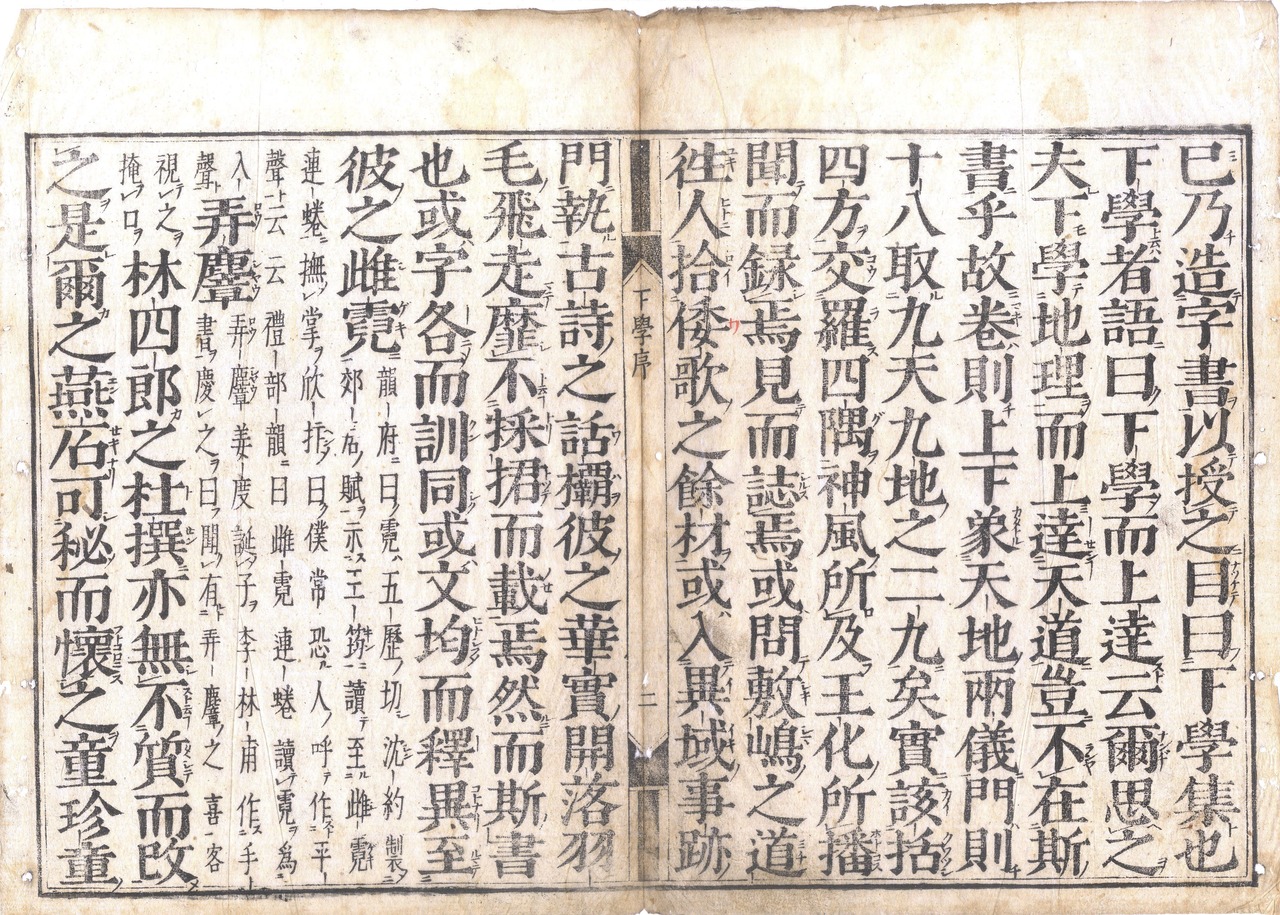 已乃造字書以授之目曰下學集也
下學者語曰下學而上達云爾思之
夫下學地理而上達天道豈不在斯
書乎故卷則上下象天地兩儀門則
十八取九天九地之二九矣實該括
四方交羅四隅神風所及王化所播
聞而録焉見而誌焉或問敷嶋之道
徃人拾倭歌之餘材或入異域事跡
下學序
二
門執古詩之話欛彼之華實開落羽
毛飛走靡不採捃而載焉然而斯書
也或字各而訓同或文均而釋異至
彼之雌霓
韻府曰霓五歷切沈約製
郊居賦示王筠讀至雌霓
連蜷撫掌欣抃曰僕常恐人呼作平
聲云云禮部韻曰雌霓連蜷讀霓爲
入聲
弄麞
弄麞姜度誕子李林甫作手
書慶之曰聞有弄麞之喜客
視之掩口
林四郎之杜撰亦無不質而改
之是爾之燕石可秘而懷之童珍童